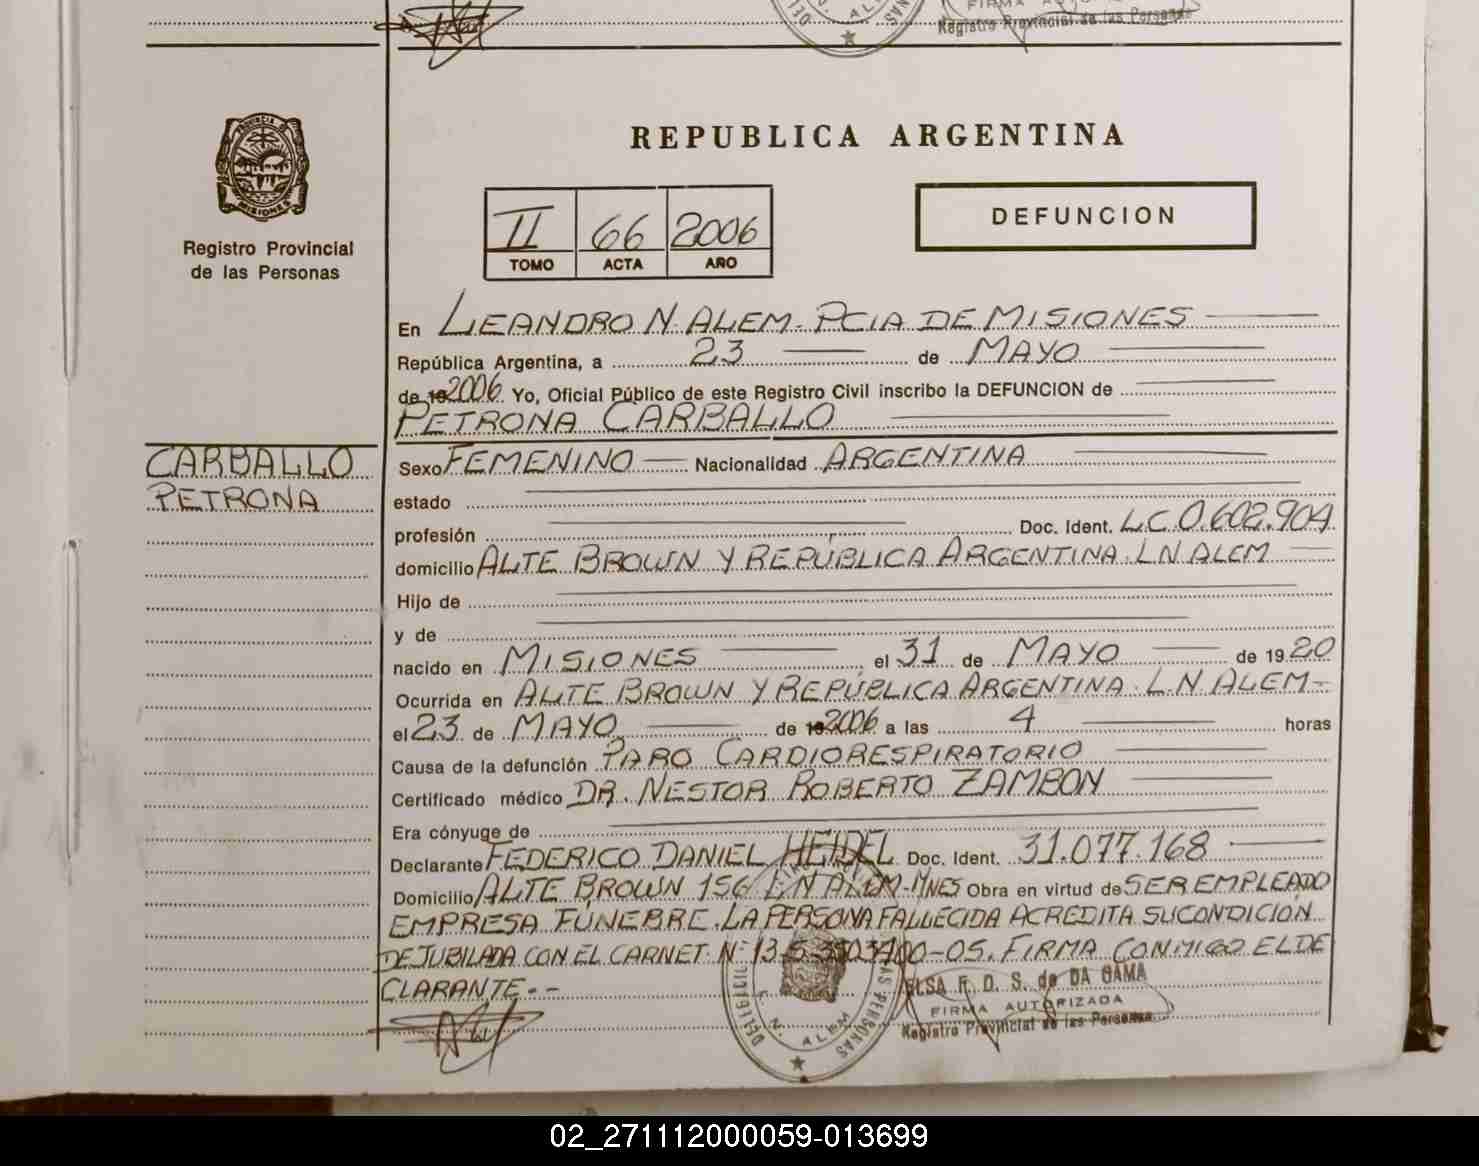 Registro Provincial de las Personas
PROVINCIA DE
MISIONES
Registro Provincial
de las Personas
REPUBLICA ARGENTINA
II 66 2006
TOMO ACTA AÑO
DEFUNCION
En LEANDRO N. ALEM - PCIA DE MISIONES
República Argentina, a 23 de MAYO
de 19 2006 Yo, Oficial Público de este Registro Civil inscribo la DEFUNCION de
PETRONA CARBALLO
CARBALLO
PETRONA
Sexo FEMENINO Nacionalidad ARGENTINA
estado
profesión Doc. Ident. L.C. 0.602.904
domicilio ALTE BROWN Y REPÚBLICA ARGENTINA. L N ALEM
Hijo de
y de
nacido en MISIONES el 31 de MAYO de 1920
Ocurrida en ALTE BROWN Y REPÚBLICA ARGENTINA. L.N. ALEM-
el 23 de MAYO de 19 2006 a las 4 horas
Causa de la defunción PARO CARDIORESPIRATORIO
Certificado médico DR. NESTOR ROBERTO ZAMBON
Era cónyuge de
Declarante FEDERICO DANIEL HEIDEL Doc. Ident. 31.077.168
Domicilio ALTE BROWN 156 L N ALEM-MNES Obra en virtud de SER EMPLEADO
EMPRESA FUNEBRE. LA PERSONA FALLECIDA ACREDITA SU CONDICIÓN
DE JUBILADA CON EL CARNET Nº FIRMA CONMIGO EL DE
CLARANTE.--
ELSA F. D. S. de DA GAMA
FIRMA AUTORIZADA
Registro Provincial de las Personas
N. ALEM
02_271112000059-013699